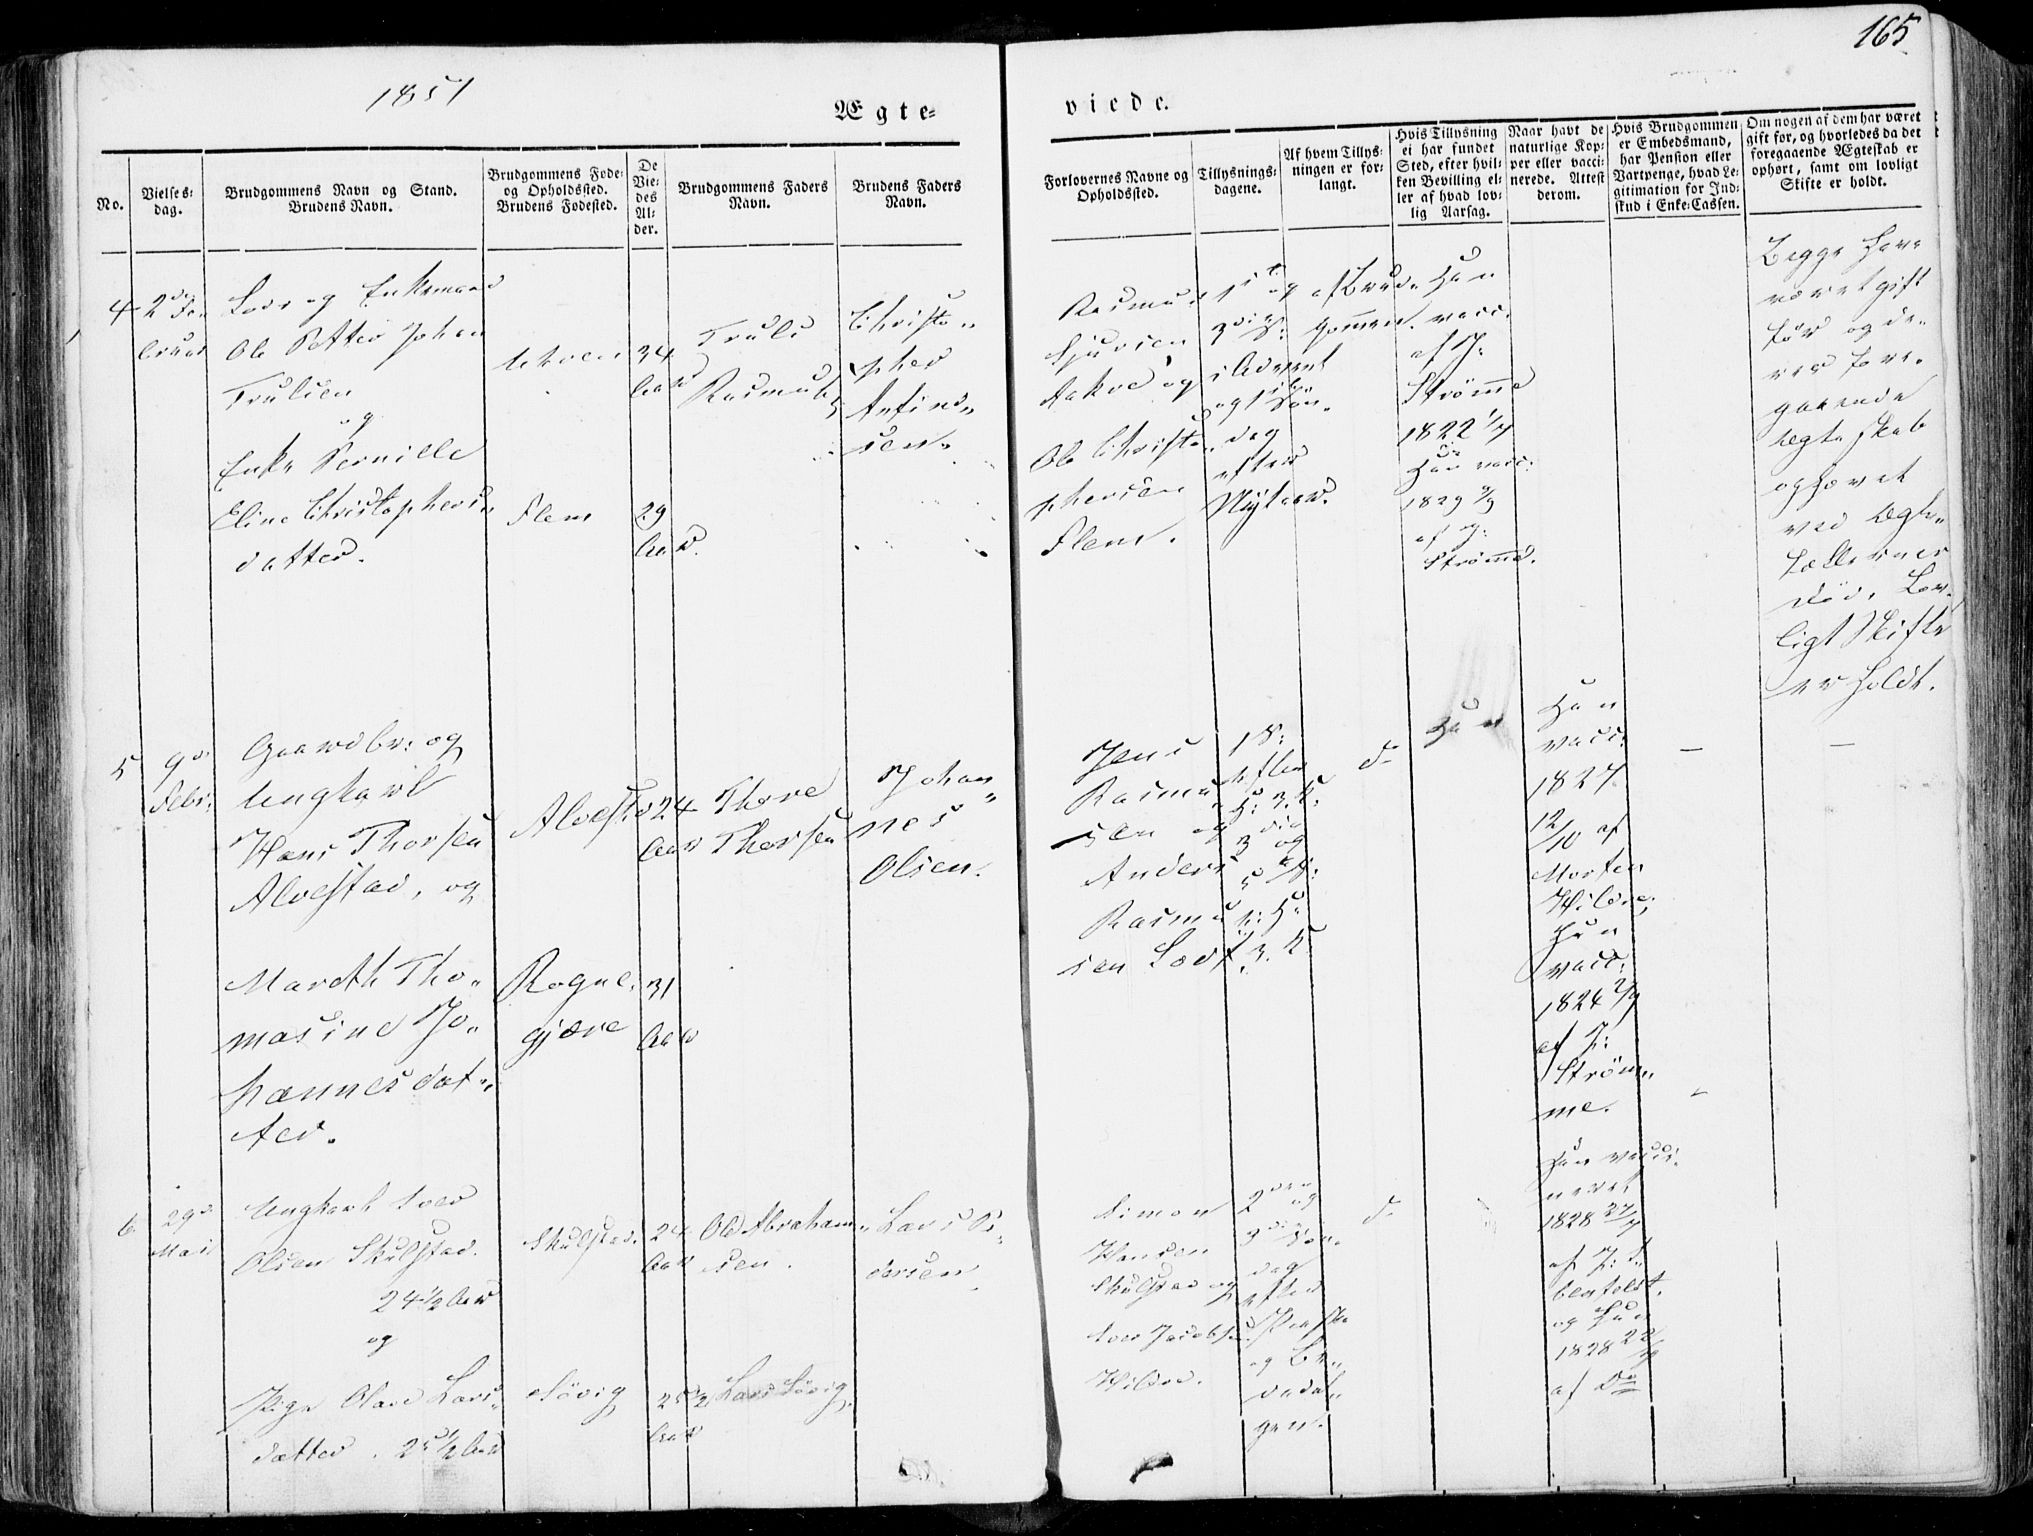 165
1851
Ægte=
viede.
No.
Vielses=
dag.
Brudgommens Navn og Stand.
Brudens Navn.
Brudgommens Føde=
og Opholdssted.
Brudens Fødested.
De
Vie=
des
Al=
der.
Brudgommens Faders
Navn.
Brudens Faders
Navn.
Forlovernes Navne og
Opholdssted.
Tillysnings=
dagene.
Af hvem Tillys=
ningen er for=
langt.
Hvis Tillysning
ei har fundet
Sted, efter hvil=
ken Bevilling el=
ler af hvad lov=
lig Aarsag.
Naar havt de
naturlige Kop=
per eller vacci=
nerede. Attest
derom.
Hvis Brudgommen
er Embedsmand,
har Pension eller
Vartpenge, hvad Le=
gitimation for Ind=
skud i Enke=Cassen.
Om nogen af dem har været
gift før, og hvorledes da det
foregaaende Ægteskab er
ophørt, samt om lovligt
Skifte er holdt.
4
og Enkemand
Ole Petter Johan
Trulsen
og
Enke Pernille
Eline Christophers
datter.
Flem
34
Aar
29
Aar.
Truls
Rasmus
Christo
pher
Anfind
sen.
Rasmus
Sjursen
Aakre og
Ole Christo
phersen
Flem.
1st og
i Advent
dag
efter
Nytaar.
af Brud
gommen.
Han
vacc.
af J.
Strømme
1822 1/7
Hun vacc:
1829 2/9
af J:
Strømme.
Begge have
været gift
før og de
res fore
gaaende
Ægteskab
ophævet
ved Ægte
fællernes
død. Lov
ligt Skifte
er holdt.
5
9de
Febr:
Gaardbr: og
Ungkarl
Hans Thorsen
Alvestad, og
Marethe Tho
masine Jo
hannesdat
ter.
Alvestad
Rogne
gjære
24
Aar
31
Aar
Thore
Thorsen
Johan
nes
Olsen.
Jens
Rasmu
sen og
Anders
Rasmu
sen
18:
efter
H: 3. K:
3die og
H:
3. K
do
Han
Han
vacc:
1827
12/10 af
Morten
Hildre;
Hun
vacc:
1824 2/9
af J:
Strøm
me.
–
–
6
29de
Mai
Ungkarl Iver
Olsen Skulstad.
24 1/2 Aar
og
Pige Olave Lars
datter. 25 1/2 Aar
Skulstad.
Søvig
24
Aar
25 1/2
Aar
Ole Abraham
sen.
Lars Søvig.
Lars Pe
dersen
Simon
Hansen
Skulstad og
Iver Jacobsen
Hildre.
2den og
3die Søn
dag
efter
Paaske
og Be
dedag
do
Han vacci
neret
1828 27/7
af J:
og Hun
1828 22/9
af Do
–